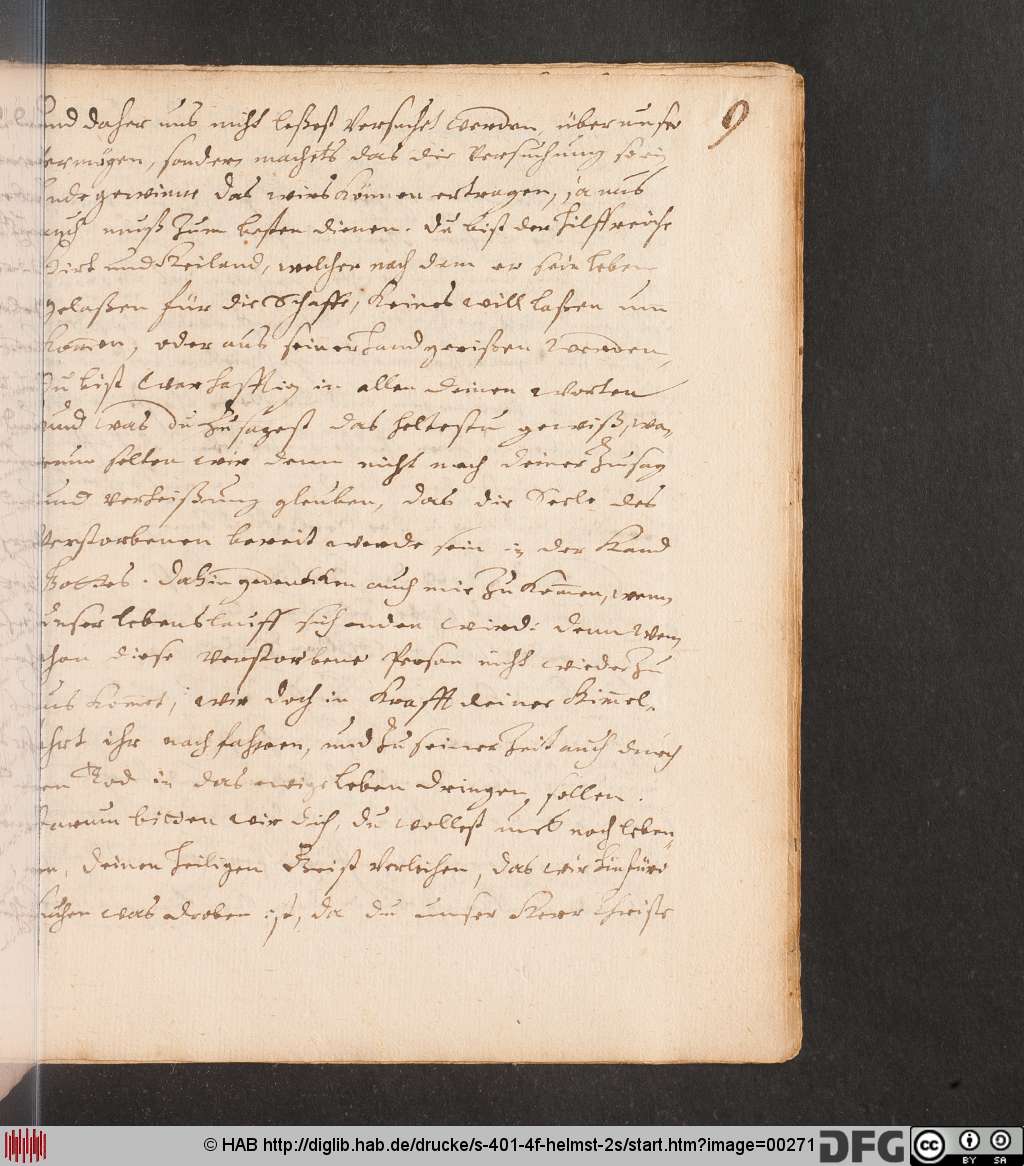 9
und daher uns nicht leßest versuchet werden, über unser
vermögen, sondern machets das die versuchung sein
ende gewinne das wirs können ertragen, ja uns
auch muß zum besten dienen. Du bist der hilffreiche
Hirt und Heiland, welcher nach dem er sein leben
gelaßen für die Schaffe, keines will laßen um
kom̅en, oder aus seiner Hand gerißen werden,
Du bist Warhafftig in allen deinen worten
und was du zusagest das heltestu gewiß, wa,
rum solten wir denn nicht nach deiner zusag
und verheißung gleuben, das die Seele des
Verstorbenen bereit werde sein in der Hand
Gottes. Dahin gedencken auch wir zu kom̅en, wenn
unser lebenslauff sich enden wird: denn wen
schon diese verstorbene Person nicht wieder zu
uns kom̅et, wir doch in Krafft deiner Him̅el,
fahrt ihr nachfahren, und zu seiner zeit auch durch
den Tod in das ewige leben dringen sollen.
Darum bitten wir dich, du wollest uns noch leben,
den, deinen heiligen Geist verleihen, das wir hinfüro
suchen was droben ist, da du unser Herr Christe
© HAB http://diglib.hab.de/drucke/s-401-4f-helmst-2s/start.htm?image=00271
DFG
cc
BY SA